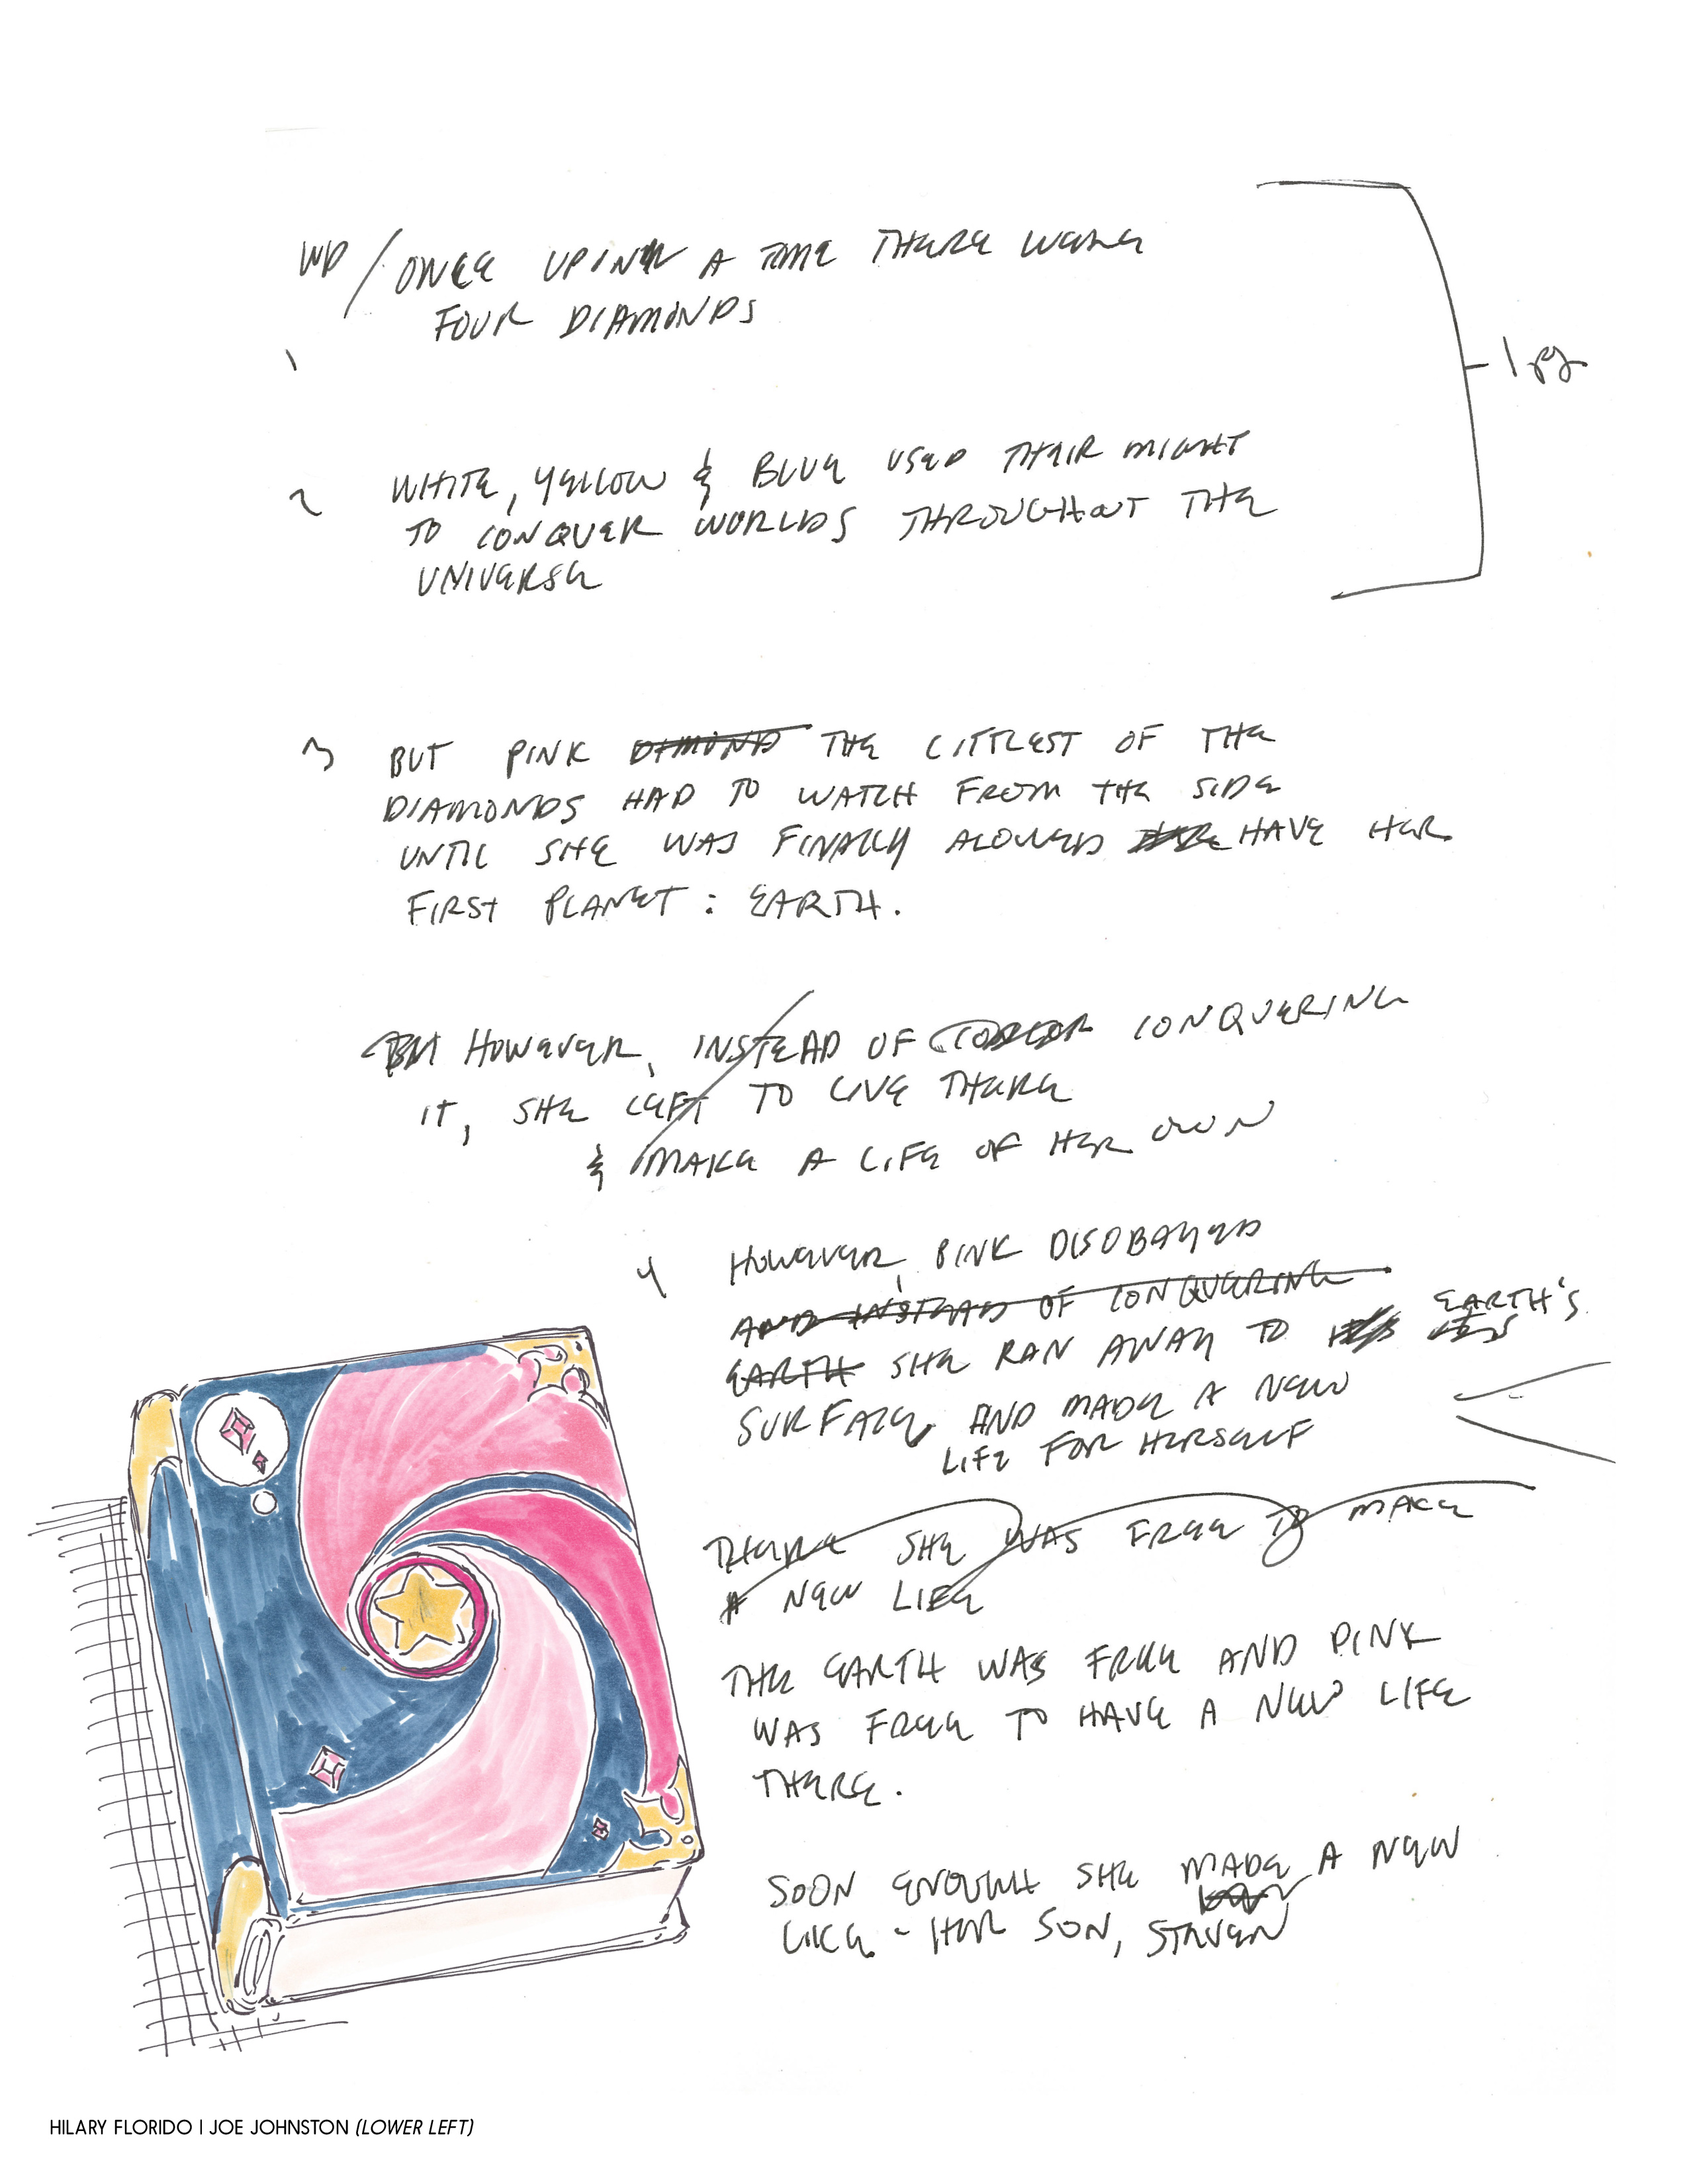 WD / ONCE UPON A TIME THERE WERE
FOUR DIAMONDS
1
1 pg
2 WHITE, YELLOW & BLUE USED THEIR MIGHT
TO CONQUER WORLDS THROUGHOUT THE
UNIVERSE
3 BUT PINK DIMOND THE LITTLEST OF THE
DIAMONDS HAD TO WATCH FROM THE SIDE
UNTIL SHE WAS FINALLY ALOWED HAVE HER
FIRST PLANET: EARTH.
BUT HOWEVER, INSTEAD OF CONQUERING
IT, SHE LEFT TO LIVE THERE
& MAKE A LIFE OF HER OWN
4 HOWEVER, PINK DISOBAYED
AND INSTEAD OF CONQUERING
EARTH SHE RAN AWAY TO EARTH'S
SURFACE AND MADE A NEW
LIFE FOR HERSELF
THERE SHE WAS FREE TO MAKE
A NEW LIFE
THE EARTH WAS FREE AND PINK
WAS FREE TO HAVE A NEW LIFE
THERE.
SOON ENOUGH SHE MADE A NEW
LIFE - HER SON, STEVEN
HILARY FLORIDO | JOE JOHNSTON (LOWER LEFT)